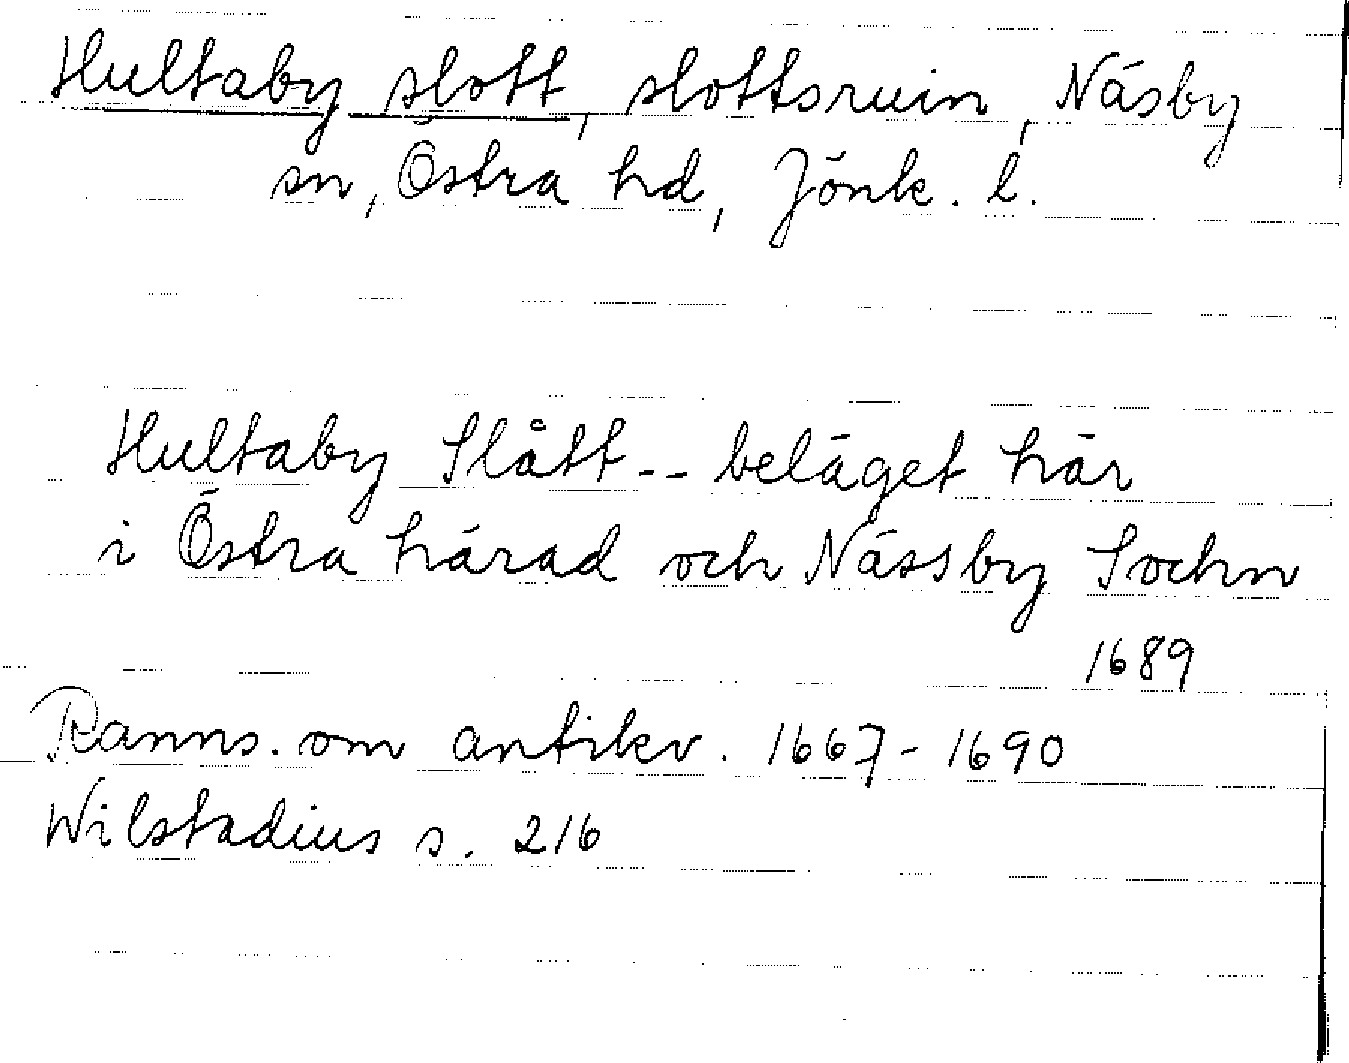 Hultaby slott, slottsruin, Näsby
sn, Östra hd, Jönk. l.
Hultaby Slått -- beläget här
i Östra härad och Nässby Sochn
1689
Ranns. om antikv. 1667-1690
Wilstadius s. 216